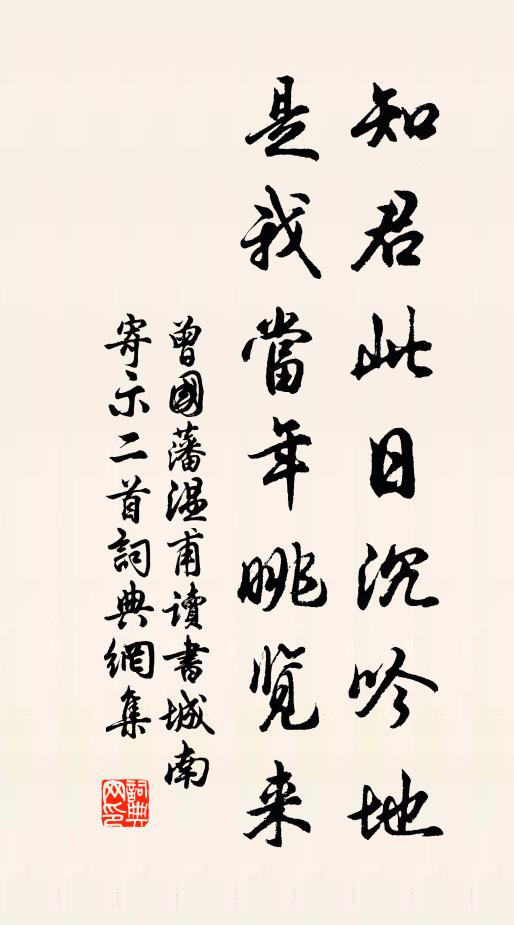 知君此日沉吟地
是我當年眺览来
曾國藩温甫讀書城南
寄示二首詞典網集
詞典网印